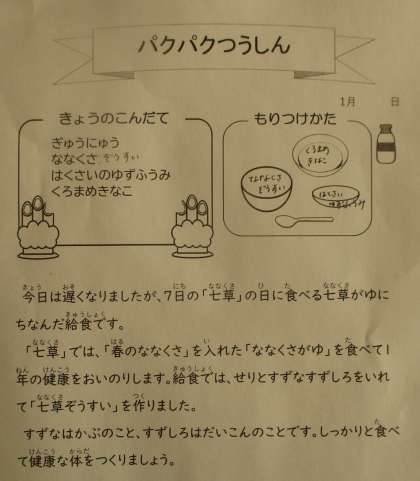 パクパクつうしん
1月　　日
きょうのこんだて
ぎゅうにゅう
ななくさぞうすい
はくさいのゆずふうみ
くろまめきなこ
もりつけかた
くろまめ
きなこ
ななくさ
ぞうすい
はくさい
ゆずふうみ
今日は遅くなりましたが、7日の「七草」の日に食べる七草がゆに
ちなんだ給食です。
「七草」では、「春のななくさ」を入れた「ななくさがゆ」を食べて1
年の健康をおいのりします。給食では、せりとすずなすずしろをいれ
て「七草ぞうすい」を作りました。
すずなはかぶのこと、すずしろはだいこんのことです。しっかりと食べ
て健康な体をつくりましょう。